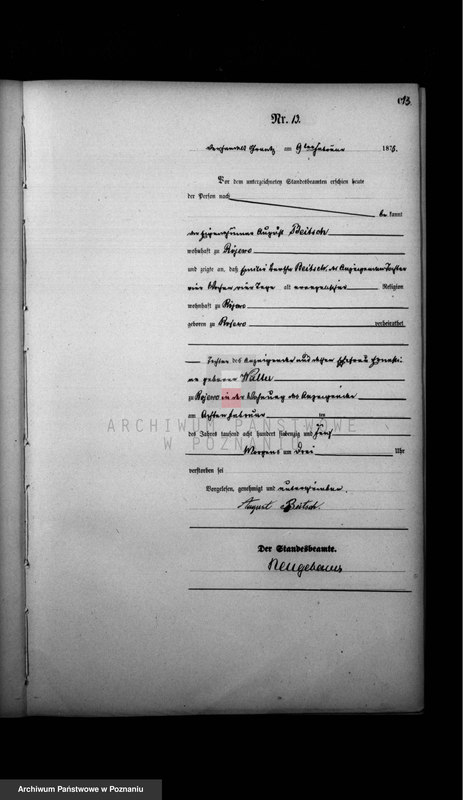 013.
Nr. 13.
am 9ten Februar 1875.
Vor dem unterzeichneten Standesbeamten erschien heute
der Person nach
be kannt
der Eigenthümer August Beitsch
wohnhaft zu Rojewo
und zeigte an, daß Emilie Bertha Beitsch, des Anzeigenden Tochter
alt evangelischer Religion
wohnhaft zu Rojewo
geboren zu Rojewo verheirathet
Tochter des Anzeigenden und dessen Ehefrau Ernesti-
ne geborene
zu Rojewo in der Wohnung des Anzeigenden
am Achten Februar ten
des Jahres tausend acht hundert siebenzig und fünf
Morgens um drei Uhr
verstorben sei
Vorgelesen, genehmigt und unterschrieben
August Beitsch
Der Standesbeamte.
Neugebauer
ARCHIWUM PAŃSTWOWE
W POZNANIU
Archiwum Państwowe w Poznaniu